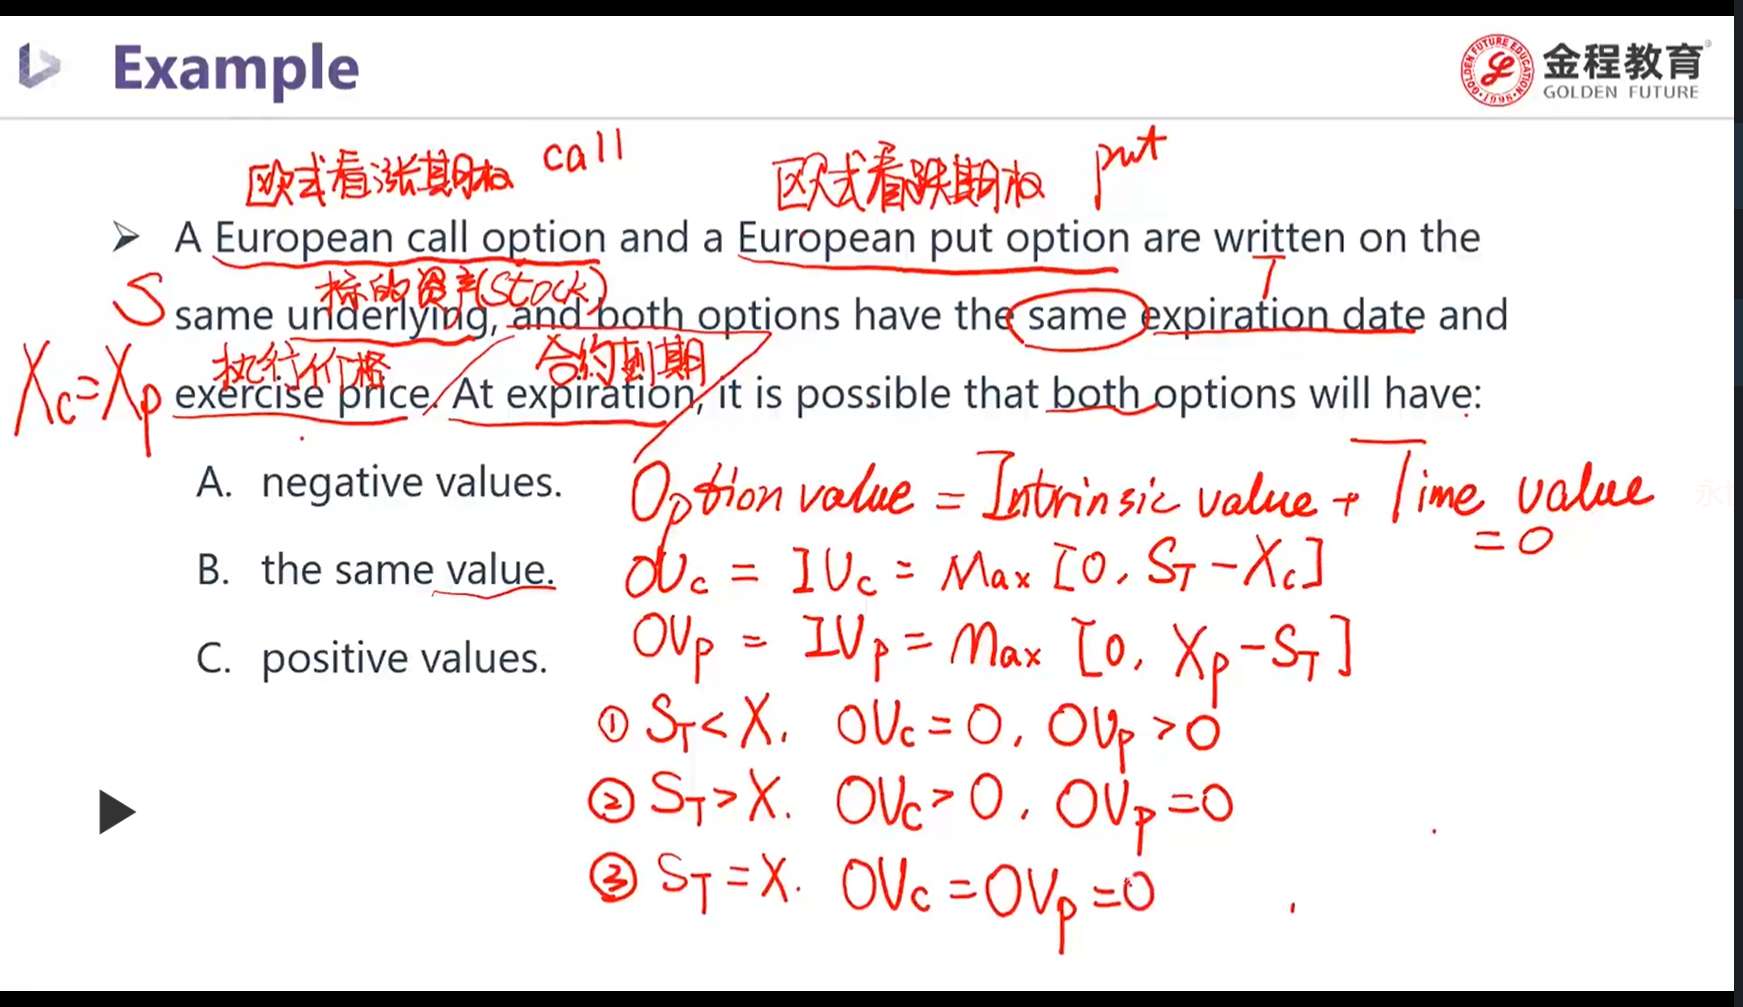 Example
金程教育
GOLDEN FUTURE
GOLDEN FUTURE EDUCATION
1998
欧式看涨期权 call
欧式看跌期权 put
➤ A European call option and a European put option are written on the
S 标的资产(Stock) T
same underlying, and both options have the same expiration date and
Xc=Xp 执行价格 合约到期
exercise price. At expiration, it is possible that both options will have:
A. negative values.
Option value = Intrinsic value + Time value
= 0
B. the same value.
OVc = IVc = Max [0, ST-Xc]
OVp = IVp = Max [0, Xp-ST]
C. positive values.
① ST < X, OVc = 0, OVp > 0
② ST > X. OVc > 0, OVp = 0
③ ST = X. OVc = OVp = 0